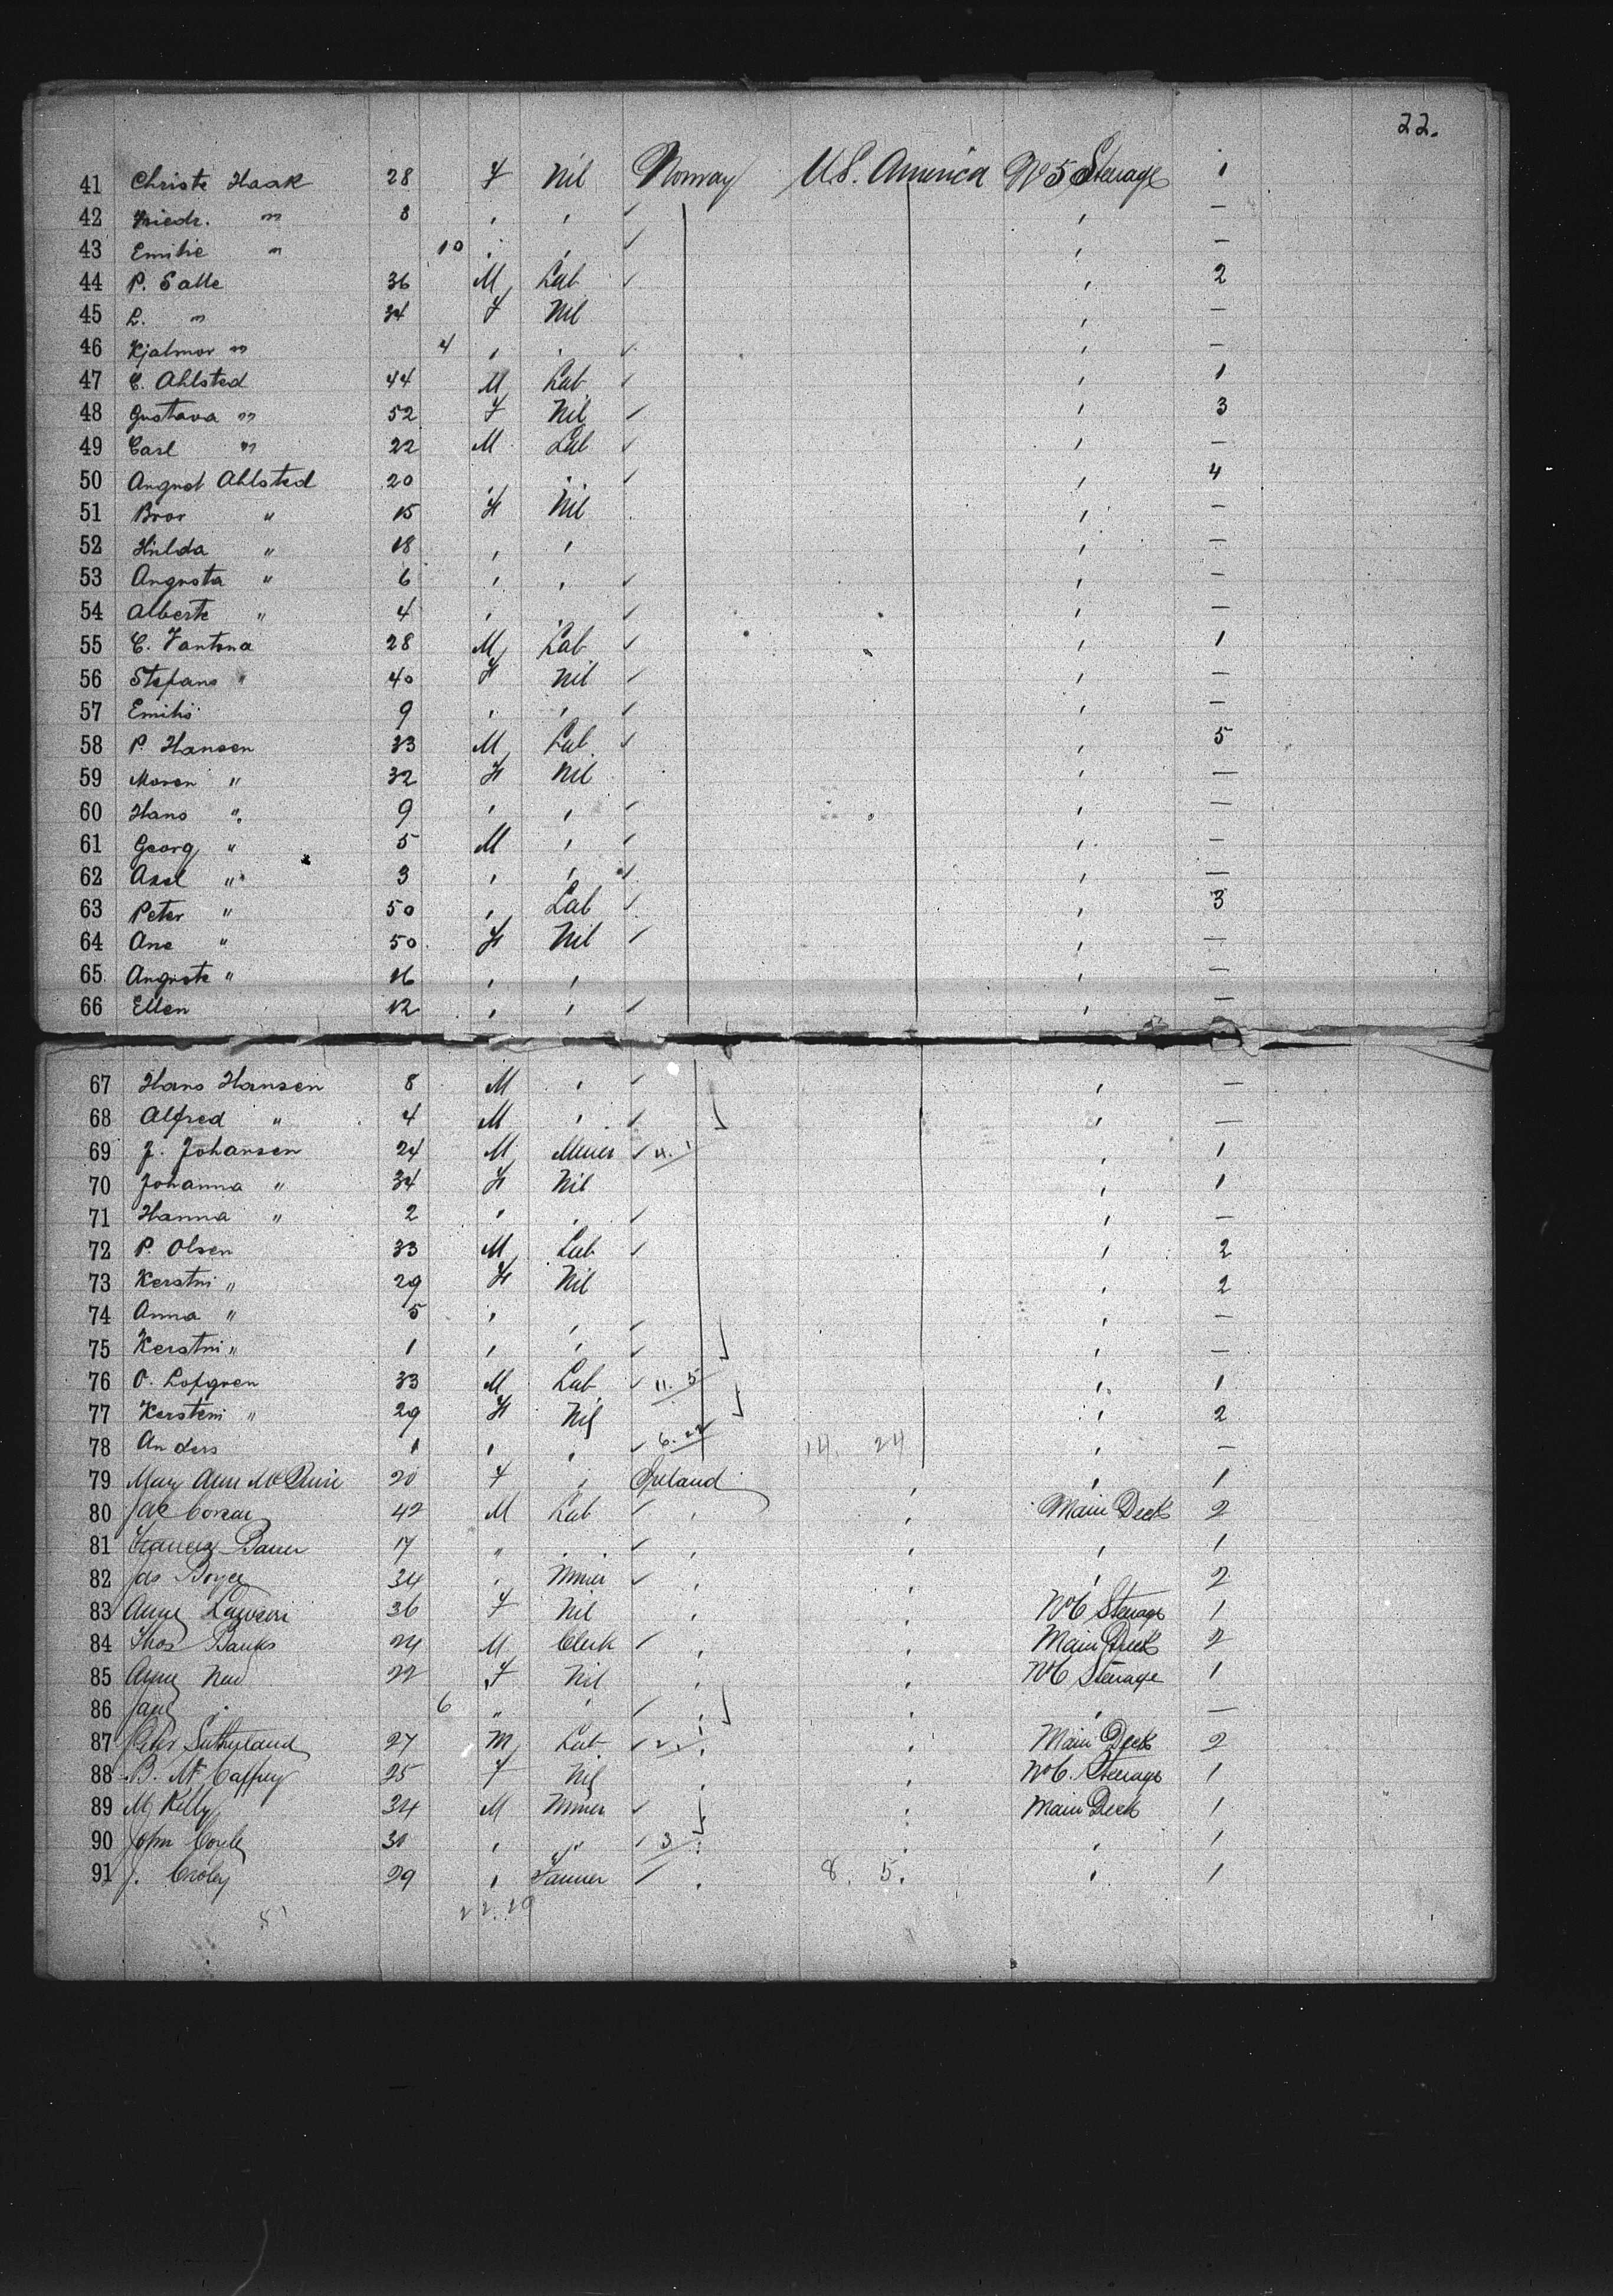 22.
41 Christe Haak 28 F Nil Norway U.S. America No 5 Steerage 1
42 Friedr. " 8 " " " —
43 Emilie " 10 " " " —
44 P. Salle 36 M Lab " 2
45 L. " 34 F Nil " —
46 Kjalmor " 4 " " " —
47 C. Ahlsted 44 M Lab " 1
48 Gustava " 52 F Nil " 3
49 Carl " 22 M Lab " —
50 August Ahlsted 20 " " " 4
51 Bror " 15 F Nil " —
52 Hulda " 18 " " " —
53 Augusta " 6 " " " —
54 Alberte " 4 " " " —
55 C. Fantona 28 M Lab " 1
56 Stefano " 40 F Nil " —
57 Emilio 9 " " " —
58 P. Hansen 33 M Lab " 5
59 Maren " 32 F Nil " —
60 Hans " 9 " " " —
61 Georg " 5 M " " —
62 Axel " 3 " " " —
63 Peter " 50 " Lab " 3
64 Ane " 50 F Nil " —
65 Auguste " 16 " " " —
66 Ellen 12 " " " —
67 Hans Hansen 8 M " " —
68 Alfred " 4 M " " —
69 J. Johansen 24 M Miner " 1
70 Johanna " 34 F Nil " 1
71 Hanna " 2 " " " —
72 P. Olsen 33 M Lab " 2
73 Kerstni " 29 F Nil " 2
74 Anna " 5 " " " —
75 Kerstni " 1 " " " —
76 O. Lofgren 33 M Lab 11. 5 " 1
77 Kersteni " 29 F Nil " 2
78 Anders 1 " " 6. 22 14. 24 " —
79 Mary Ann 20 F " Ireland " " 1
80 42 M Lab " " Main Deck 2
81 17 " " " " " 1
82 Jas Boyce 34 " Miner " " " 2
83 Anne Lawson 36 F Nil " " No 6 Steerage 1
84 Thos Banks 24 M Clerk " " Main Deck 2
85 Anne 22 F Nil " " No 6 Steerage 1
86 Jane " 6 " " " " —
87 Peter Sutherland 27 M Lab " " Main Deck 2
88 B. McCaffrey 25 F Nil " " No 6. Steerage 1
89 M Kelly 34 M Miner " Main Deck 1
90 John Coyle 30 " " 3 " " 1
91 J. Croley 29 " " 8. 5. " 1
22. 29